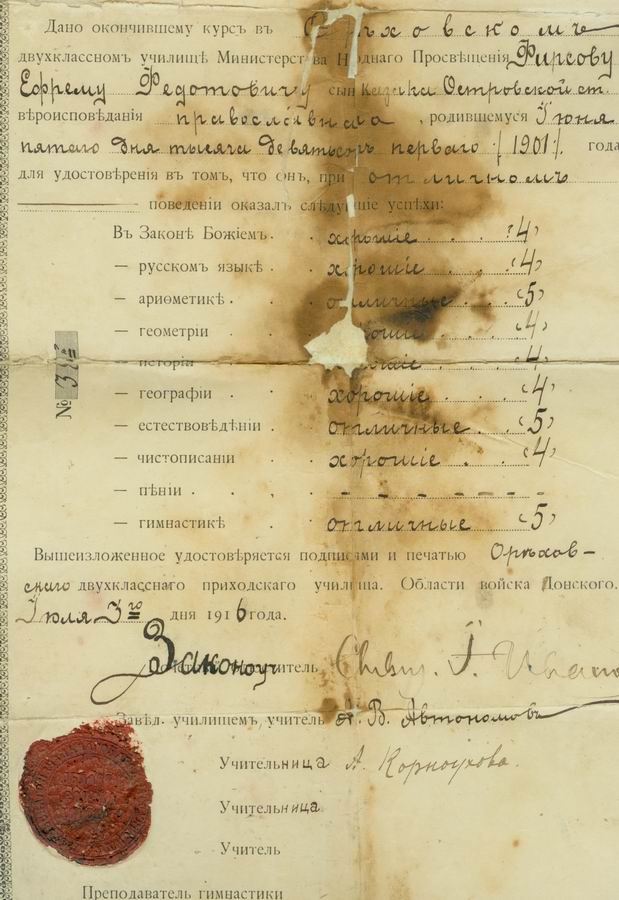 Дано окончившему курсъ въ Орѣховскомъ
двухклассномъ училищѣ Министерства Народнаго Просвѣщенія Фирсову
Ефрему Федотовичу сынъ Казака Островской ст.
вѣроисповѣданія православнаго, родившемуся Іюня
пятаго дня тысяча девятьсотъ перваго /1901/. года
для удостовѣренія въ томъ, что онъ, при отличномъ
поведеніи оказалъ слѣдующіе успѣхи:
Въ Законѣ Божіемъ хорошіе (4)
— русскомъ языкѣ хорошіе (4)
— ариѳметикѣ отличные (5)
— геометріи хорошіе (4)
— исторіи хорошіе (4)
— географіи хорошіе (4)
— естествовѣдѣніи отличные (5)
— чистописаніи хорошіе (4)
— пѣніи - - - - - - - -
— гимнастикѣ отличные (5)
№
Вышеизложенное удостовѣряется подписями и печатью Орѣхов-
скаго двухкласснаго приходскаго училища. Области войска Донского.
Іюля 3го дня 1916 года.
Законоучитель Свящ. І.
Завѣд. училищемъ, учитель А. В. Автономовъ
Учительница А. Корноухова.
Учительница
Учитель
Преподаватель гимнастики